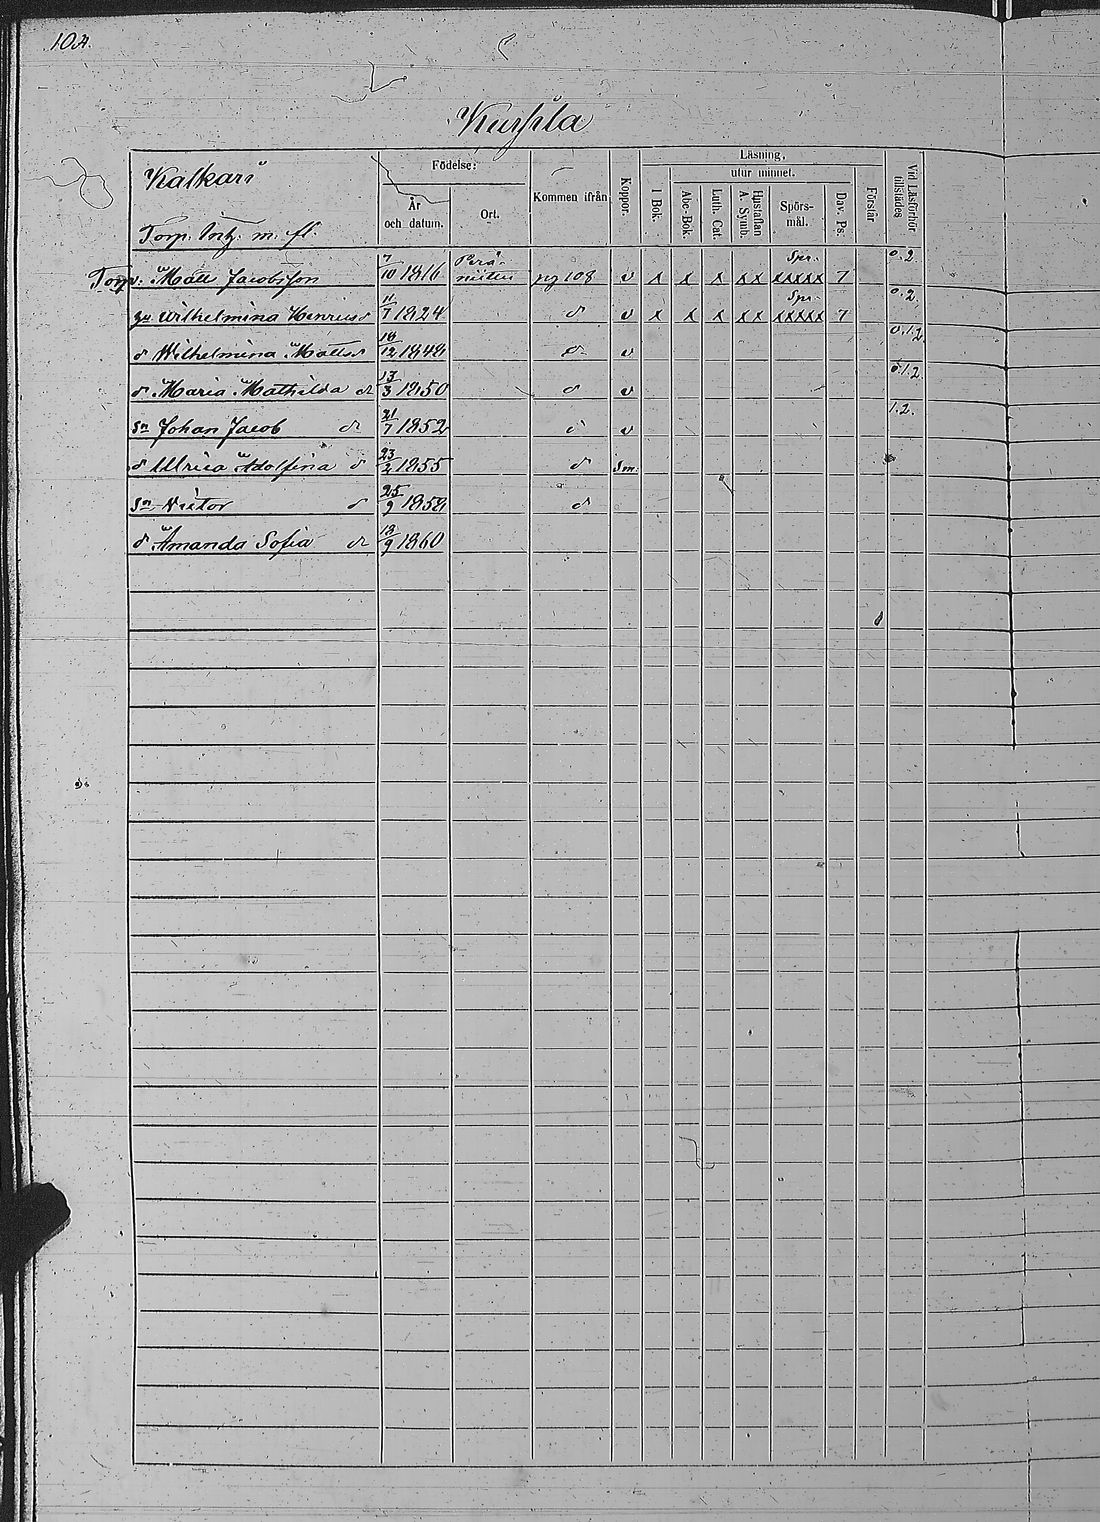 104.
Kurjila
Kalkari
Torp. Inh. m. fl.
Födelse:
År och datum.
Ort.
Kommen ifrån
Koppor.
Läsning,
utur minnet.
I Bok.
Abc-Bok.
Luth. Cat.
Hustaflan A. Symb.
Spörs-mål.
Dav. Ps.
Förstår.
Vid Läsförhör tillstädes
Torp. Matts Jacobsson 7/10 1816 Perä- pg 108 v x x x xx Spr. xxxxx 7 0.2.
hu Wilhelmina Henricsd 11/7 1824 d v x x x xx Spr. xxxxx 7 0.2.
d Wilhelmina Mattsd 18/12 1848 d v 0.1.2.
d Maria Mathilda d 13/3 1850 d v 0.1.2.
Sn Johan Jacob d 21/7 1852 d v 1.2.
d Ulrica Adolfina d 23/2 1855 d Sm.
Sn Victor d 25/9 1858 d
d Amanda Sofia d 13/9 1860